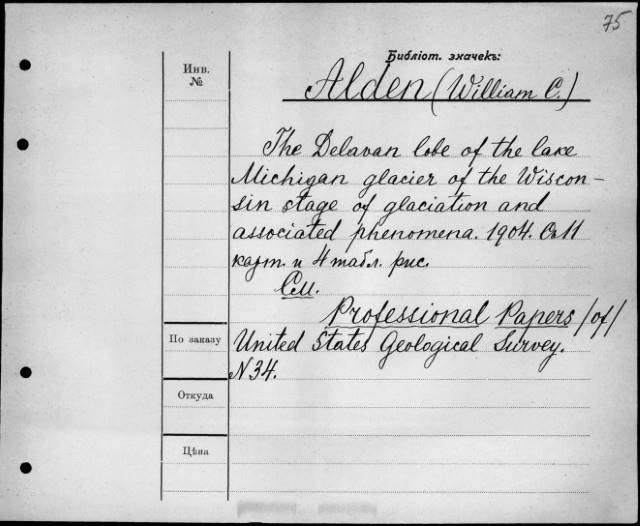 75
Библіот. значекъ:
Инв.
№
Alden (William C.)
The Delavan lobe of the lake
Michigan glacier of the Wiscon-
sin stage of glaciation and
associated phenomena. 1904. Съ 11
карт. и 4 табл. рис.
См.
Professional Papers /of/
По заказу
United States Geological Survey.
N 34.
Откуда
Цѣна